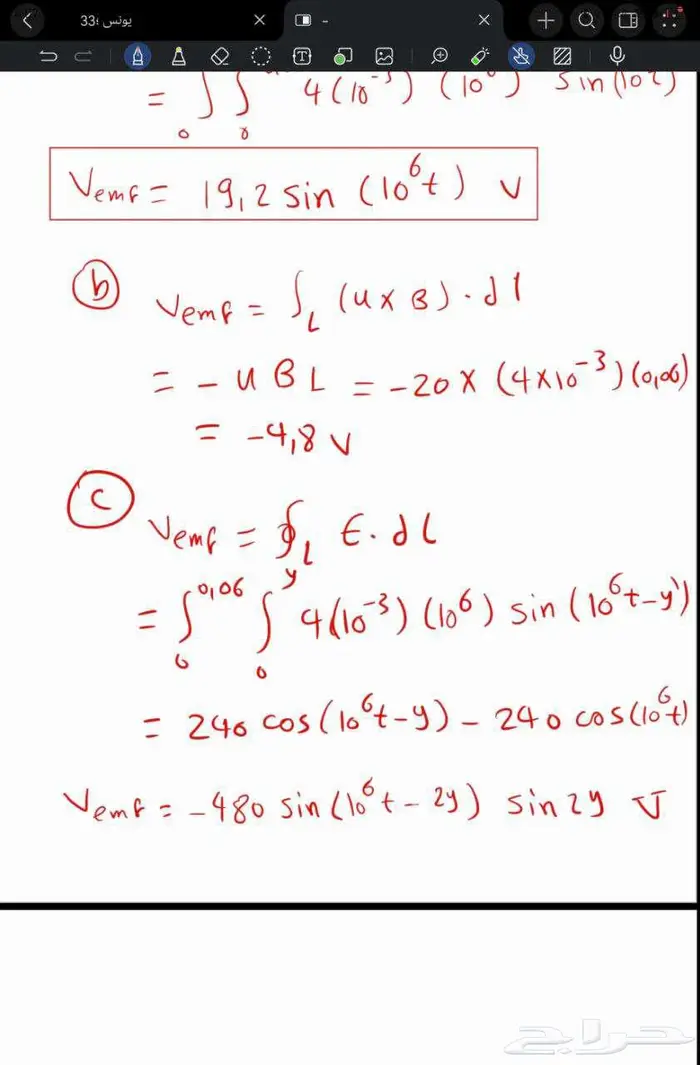 يونس ;33
-
= ∫₀ ∫₀ 4(10⁻³) (10⁶) sin(10
Vemf = 19,2 sin (10⁶t) V
b
Vemf = ∫L (u × B) · dl
= - u B L = -20 × (4×10⁻³)(0,06)
= -4,8 V
c
Vemf = ∮L E · dL
= ∫₀^0,06 ∫₀^y 4(10⁻³)(10⁶) sin(10⁶t-y')
= 240 cos(10⁶t-y) - 240 cos(10⁶t)
Vemf = -480 sin(10⁶t - 2y) sin 2y V
حراج